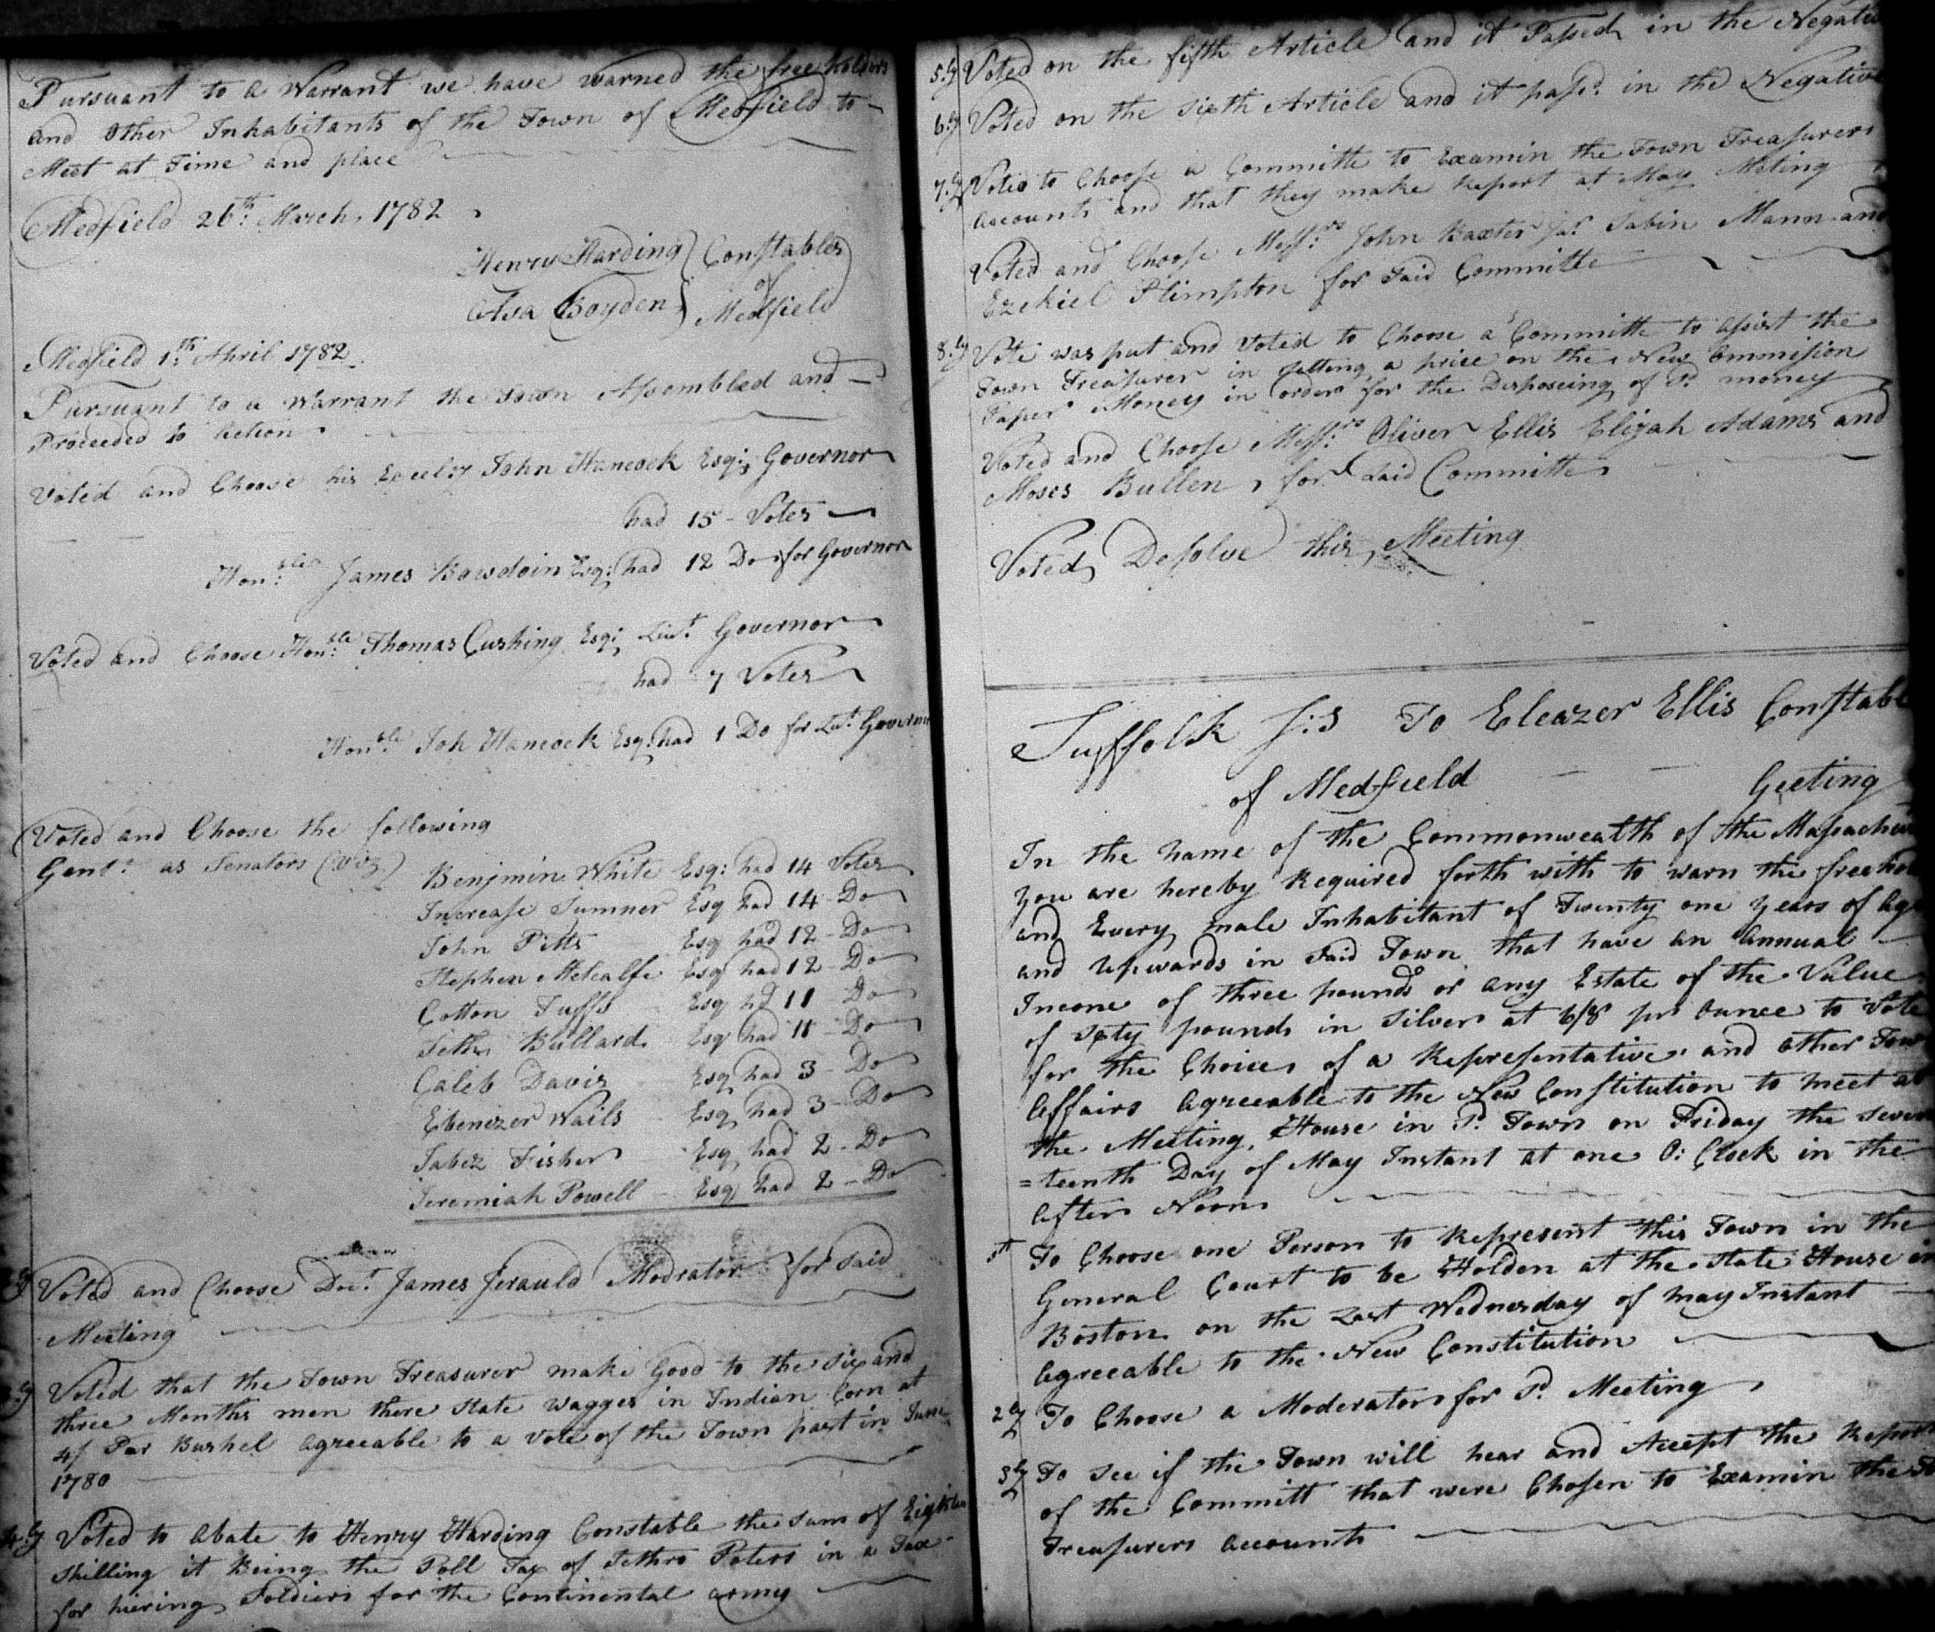 Pursuant to a Warrant we have warned the free holders
and Other Inhabitants of the Town of Medfield to
Meet at Time and place
Medfield 26th March 1782
Henry Harding } Constables
of
Asa Boyden } Medfield
Medfield 1th April 1782
Pursuant to a Warrant the Town Assembled and
Proceeded to Action
Voted and Choose his Excelcy John Hancock Esqr Governor
had 15 - Votes
Honble James Bowdoin Esqr had 12 Do for Governor
Voted and Choose Honble Thomas Cushing Esqr Liut Governor
had 7 Votes
Honble Joh Hancock Esqr had 1 Do for Liut Governor
Voted and Choose the following
Gent: as Senators (viz)
Benjmin White Esq: had 14 Votes
Increase Sumner Esq had 14 - Do
John Pitts Esq had 12 - Do
Stephen Metcalfe Esq had 12 - Do
Cotton Tuffs Esq hd 11 - Do
Seth Bullard Esq had 11 - Do
Caleb Davis Esq had 3 - Do
Ebenezer Wails Esq had 3 - Do
Jabez Fisher Esq had 2 - Do
Jeremiah Powell - Esq had 2 - Do
Voted and Choose Doct James Jerauld Modrator for said
Meeting
Voted that the Town Treasurer make Good to the six and
three Months men there state wagges in Indian Corn at
4/ Par Bushel agreeable to a vote of the Town past in June
1780
4ly Voted to abate to Henry Harding Constable the sum of Eighteen
shilling it Being the Poll Tax of Jethro Peters in a Tax
for hiering Soldiers for the Continental army
5ly Voted on the fifth Article and it Passed in the Negative
6ly Voted on the sixth Article and it passd in the Negative
7ly Voted to Choose a Committe to Examin the Town Treasurers
accounts and that they make Report at May Meting
Voted and Choose Messrs John Baxter Jur Sabin Mann and
Ezekiel Plimpton for said Committe
8ly Vote was put and Voted to Choose a Committe to Assist the
Town Treasurer in setting a price on the New Emmision
Paper Money in order for the Disposeing of sd money
Voted and Choose Messrs Oliver Ellis Elijah Adams and
Moses Bullen for said Committe
Voted Desolve this Meeting
Suffolk s:s To Eleazer Ellis Constable
of Medfield Geeting
In the name of the Commonwealth of the Masachus
you are hereby Required forth with to warn the freehol
and Every male Inhabitant of Twenty one years of Age
and upwards in said Town that have an annual
Income of three pounds or any Estate of the Value
of sixty pounds in silver at 6/8 pr ounce to Vote
for the Choice of a Representative and other Town
affairs agreeable to the New Constitution to meet at
the Meeting House in sd Town on Friday the seven
=teenth Day of May Instant at one O: Clock in the
after Noon
1st To Choose one Person to Represent this Town in the
General Court to be Holden at the State House in
Boston on the Last Wednesday of may Instant
agreeable to the New Constitution
2ly To Choose a Moderator for sd Meeting
3ly To see if the Town will hear and Accept the Report
of the Committ that were Chosen to Examin the
Treasurers accounts